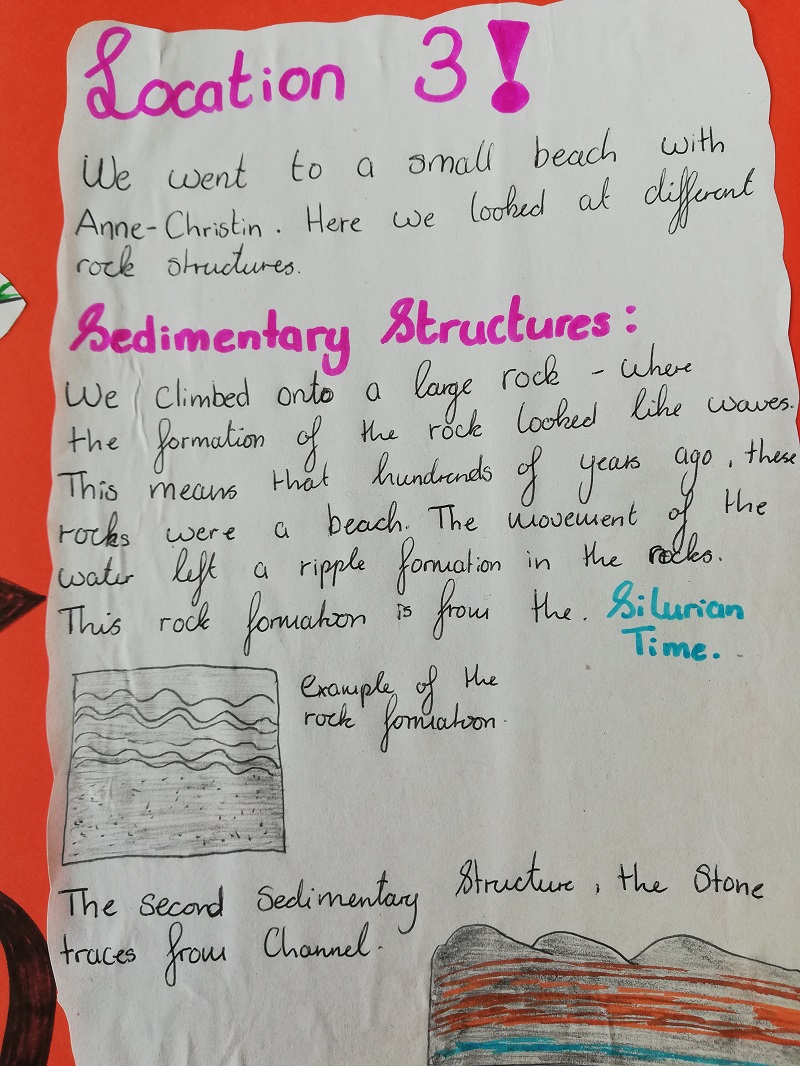 Location 3!
We went to a small beach with
Anne-Christin. Here we looked at different
rock structures.
Sedimentary Structures:
We climbed onto a large rock - where
the formation of the rock looked like waves.
This means that hundrends of years ago, these
rocks were a beach. The movement of the
water left a ripple formation in the rocks.
This rock formation is from the. Silurian
Time.
Example of the
rock formation.
The second Sedimentary Structure, the Stone
traces from Channel.